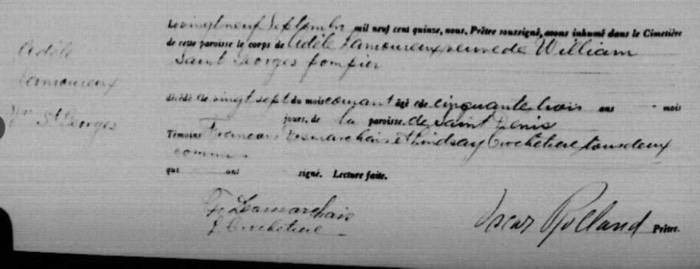 Adèle
Lamoureux
St Georges
Le vingt neuf Septembre mil neuf cent quinze, nous, Prêtre soussigné, avons inhumé dans le Cimetière
de cette paroisse le corps de Adèle Lamoureux veuve de William
Saint Georges pompier
décédé le vingt sept du mois courant âgé de cinquante trois ans mois
jours, de la paroisse de Saint Denis
Témoins Francois Desmarchais et Lindsay Crochetiere tous deux
commis
qui ont signé. Lecture faite.
F. Desmarchais
L Crochetiere
Oscar Rolland Prêtre.